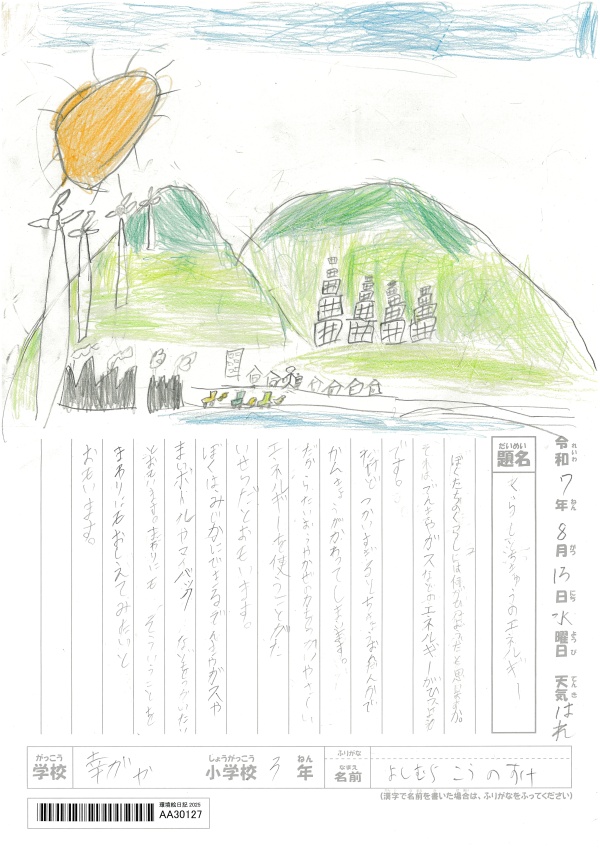 令和7年8月13日水曜日 天気はれ
れいわ ねん がつ にち ようび てんき
だいめい
題名
くらしと ちきゅうのエネルギー
ぼくたちのくらしには何がひつようだと思いますか。
それは、でんきやガスなどのエネルギーがひつよう
です。
だけど つかいすぎるとちきゅうおんだんかで
かんきょうがかわってしまいます。
だから たいようやかぜの力をつかった やさしい
エネルギーを使うことがた
いせつだとおもいます。
ぼくはみぢかにできるで
マイボトルやマイバッグ などをつかいたい
とおもいます。まわりにも そういうことを
まわりにもおしえてみたいと
おもいます。
がっこう
学校
幸がや
しょうがっこう
小学校
3
ねん
年
ふりがな
なまえ
名前
よしむら こうのすけ
(漢字で名前を書いた場合は、ふりがなをふってください)
環境絵日記 2025
AA30127